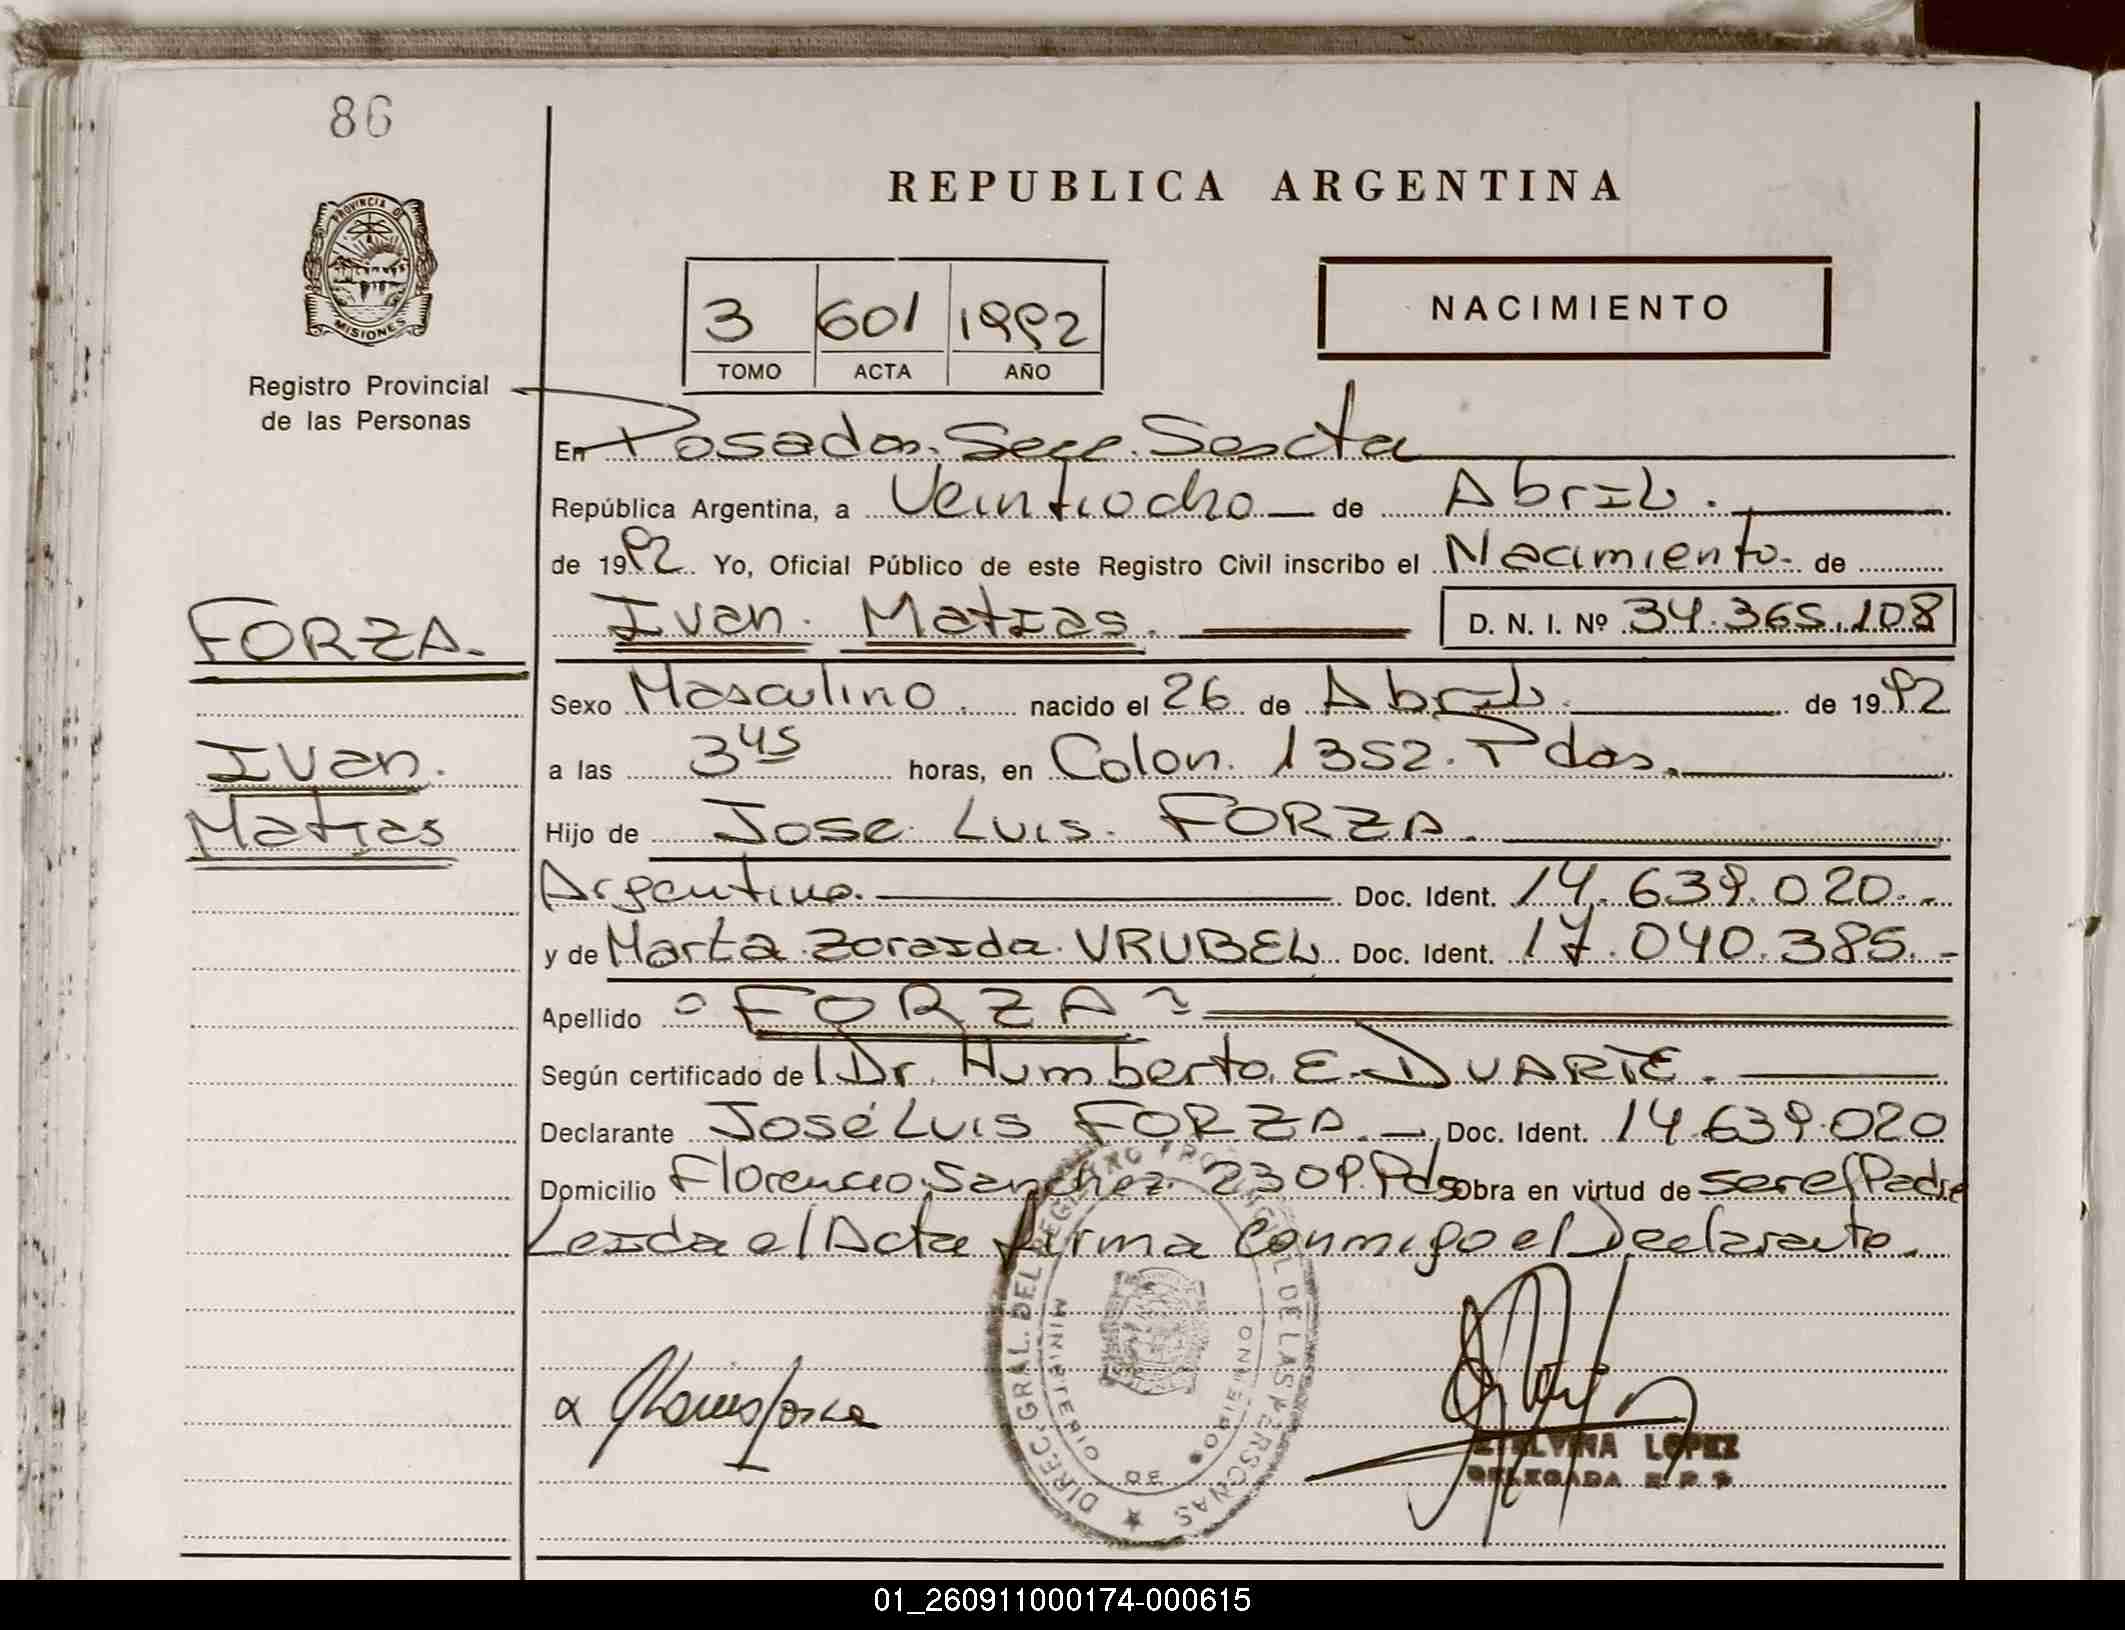 86
REPUBLICA ARGENTINA
PROVINCIA DE
MISIONES
Registro Provincial
de las Personas
3 601 1992
TOMO ACTA AÑO
NACIMIENTO
En Posadas. Secc. Sexta
República Argentina, a Veintiocho de Abril.
de 1992 Yo, Oficial Público de este Registro Civil inscribo el Nacimiento. de
Ivan. Matias. D. N. I. Nº 34.365.108
FORZA.
Ivan.
Matias
Sexo Masculino. nacido el 26 de Abril. de 1992
a las 3 45 horas, en Colon. 1352. Pdas.
Hijo de Jose Luis. FORZA.
Argentino. Doc. Ident. 14.639.020.-
y de Marta Zoraida VRUBEL Doc. Ident. 17.040.385.-
Apellido = FORZA =
Según certificado de Dr. Humberto E. DUARTE.
Declarante José Luis FORZA.- Doc. Ident. 14.639.020
Domicilio Florencio Sanchez 2309. Pdas Obra en virtud de ser el Padre
Leida el Acta firma conmigo el Declarante.
DIREC. GRAL. DEL REGISTRO PROVINCIAL DE LAS PERSONAS
MINISTERIO DE GOBIERNO
LOPEZ
DELEGADA
01_260911000174-000615